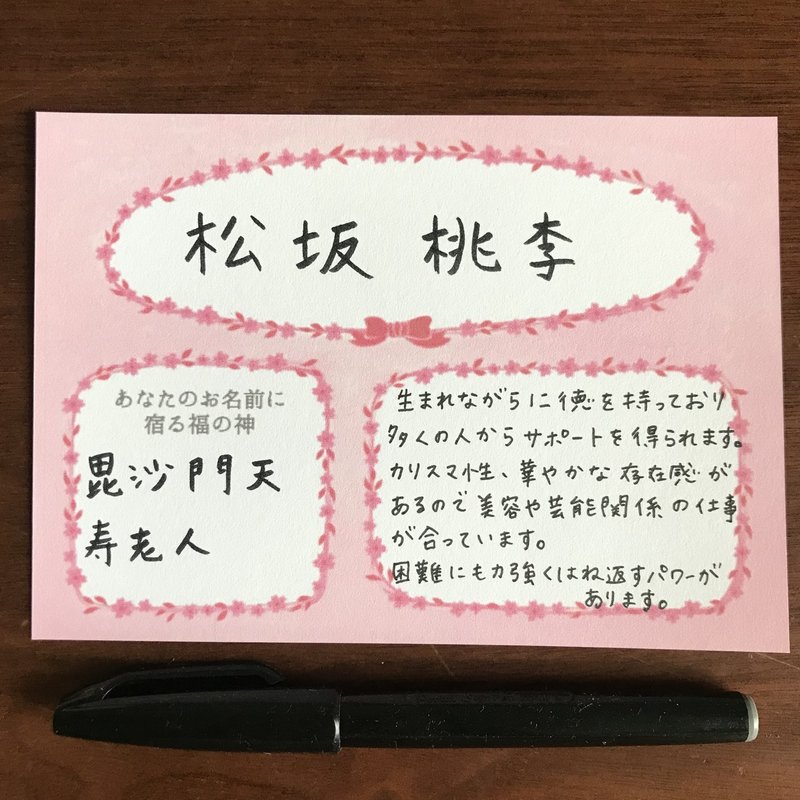 松坂 桃李
あなたのお名前に
宿る福の神
毘沙門天
寿老人
生まれながらに徳を持っており
多くの人からサポートを得られます。
カリスマ性、華やかな存在感が
あるので美容や芸能関係の仕事
が合っています。
困難にも力強くはね返すパワーが
あります。